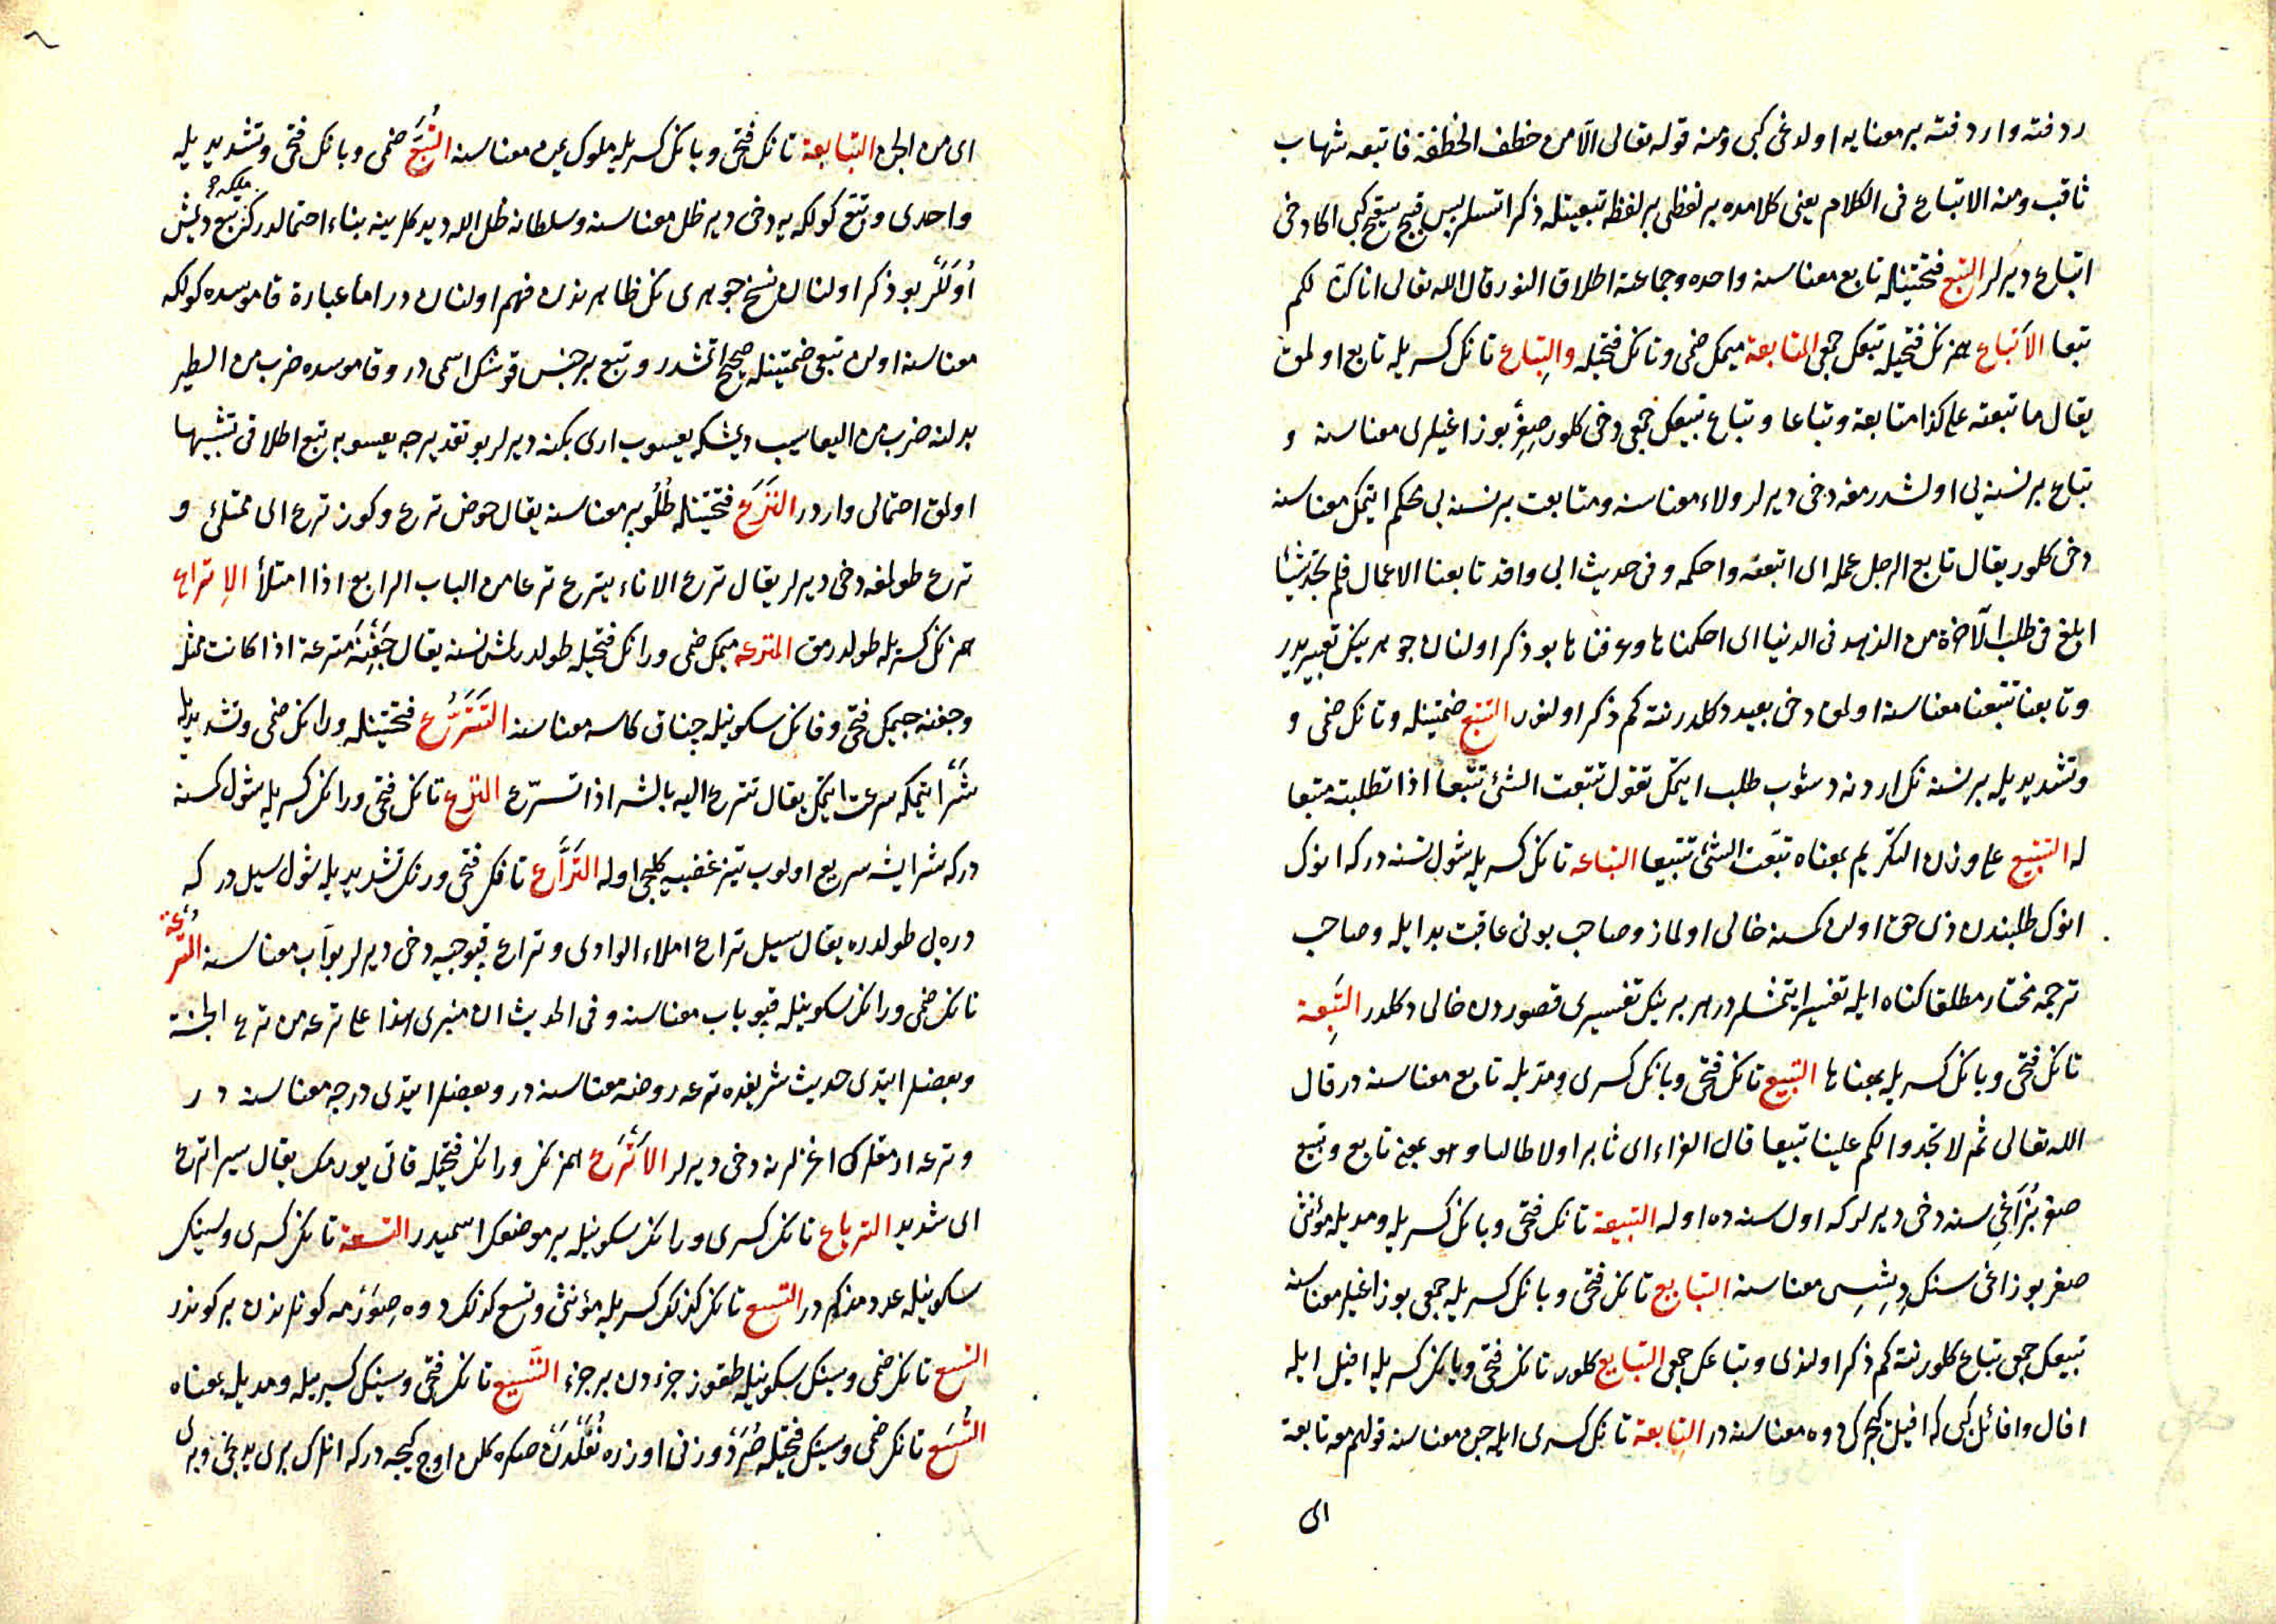 ردفته واردفته بر معنايه اولدوغى كبى ومنه قوله تعالى الّا من خطف الخطفة فاتبعه شهاب
ثاقب ومنه الاتباع فى الكلام يعنى كلامده بر لفظى بر لفظه تبعيتله ذكر اتسلر بس قبيح شقيح كبى اكا دخى
اتباع ديرلر التبع فتحتينله تابع معناسنه واحده وجماعته اطلاق النور قال الله تعالى انا كنّا لكم
تبعا الاَتباع همزنك فتحيله تبعك جمعى المتابعة ميمك ضمى وتانك فتحيله والتِباع تانك كسريله تابع اولمق
يقال ما تبعته على كذا متابعة وتباعا وتباع تبيعك جمعى دخى كلور صِغِر بوزاغيلرى معناسنه و
تباع بر نسنه يى اولشدرمغه دخى ديرلر ولاء معناسنه ومتابعت بر نسنه يى محكم ايتمك معناسنه
دخى كلور يقال تابع الرجل عمله اى اتبعه واحكمه وفى حديث ابى واقد تابعنا الاعمال فلم نجد شيئا
ابلغ فى طلب الآخرة من الزهد فى الدنيا اى احكمناها وعرفناها بو ذكر اولنان جوهرينك تعبيريدر
وتابعنا تتبعنا معناسنه اولمق دخى بعيد دكلدر نته كم ذكر اولنور التتبع ضمتينله وتانك ضمى و
وتشديديله بر نسنه نك اردنه دشوب طلب ايتمك تقول تتبعت الشئ تتبعا اذا تطلبته متبعا
له التتبيع على وزن التكريم بمعناه تبّعت الشئ تتبيعا التباعه تانك كسريله شول نسنه دركه انوك
انوك طلبندن ذى حق اولن كمسنه خالى اولماز وصاحب بونى عاقبت بد ايله وصاحب
ترجمه مختار مطلقا كناه ايله تفسير ايتمشلردر هر برينك تفسيرى قصوردن خالى دكلدر التَبِعة
تانك فتحى وبانك كسريله بمعناها التبيع تانك فتحى وبانك كسرى ومدّيله تابع معناسنه در قال
الله تعالى ثم لا تجدوا لكم علينا تبيعا قال الفراء اى ثابرا ولا طالبا وهو بمعنى تابع وتبيع
صغر بُزَاغِى سنه دخى ديرلر كه اول سنه ده اوله التبيعة تانك فتحى وبانك كسريله ومديله مؤنثى
صغر بوزاغى سنك دِيشِيسِى معناسنه التبايع تانك فتحى وبانك كسريله جمعى بوزاغيلر معناسنه
تبيعك جمعى تباع كلور نته كم ذكر اولندى وتباعك جمعى التبايع كلور تانك فتحى ويانك كسريله افيل ايله
افال وافائل كبى كه افيل كچرك دوه معناسنه در التابعة تانك كسرى ايله جن معناسنه قولهم معه تابعة
اى
اى من الجن التبابعة تانك فتحى وبانك كسريله ملوك يمن معناسنه التُبَّع ضمى وبانك فتحى وتشديديله
واحدى وتبّع كولكه يه دخى دير ظل معناسنه وسلطانه ظل الله ديدكلرينه بناء احتمالدر كه تبّع ديمش
اُولَلَر بو ذكر اولنان نسخ جوهرى نك ظاهرندن فهم اولنان در اما عبارة قاموسده كولكه
معناسنه اولن تبعى ضمتينله صحيح اتمشدر وتبع بر جنس قوشك اسمى در وقاموسده ضرب من الطير
بدلنه ضرب من اليعاسيب ديمشكه يعسوب ارى بكنه ديرلر بو تقديرجه يعسوبه تبع اطلاقى تشبيها
اولمق احتمالى واردر التَرَع فتحتينله طُلُو بر معناسنه يقال حوض ترع وكوز ترع اى ممتلئ و
ترع طولمغه دخى ديرلر يقال ترع الاناء يترع ترعا من الباب الرابع اذا امتلأ الاِتراع
همزنك كسريله طولدرمق المترعه ميمك ضمى ورانك فتحيله طولدرلمش نسنه يقال جَفْنَة مترعة اذا كانت ممتلئ
وجفنه جيمك فتحى وفانك سكونيله چناق كاسه معناسنه التَتَرُّع فتحتينله ورانك ضمى وتشديديله
شَرّ ايتمكه سرعت ايتمك يقال تترع اليه بالشر اذا تسرّع الترِع تانك فتحى ورانك كسريله شول كمسنه
دركه شر ايشه سريع اولوب تيز غضبيه كلجى اوله التَرَّاع تانك فتحى ورنك تشديديله شول سيل در كه
دره يى طولدره يقال سيل تراع املاء الوادى وتراع قپوجييه دخى ديرلر بوّاب معناسنه التُرْعَة
تانك ضمى ورانك سكونيله قپو باب معناسنه وفى الحديث ان منبرى هذا على ترعه من ترع الجنة
وبعضلر ايتدى حديث شريفده ترعه روضه معناسنه در وبعضلر ايتدى درجه معناسنه در
وترعه ارمقلرك اغزلرنه دخى ديرلر الاَتْرَع همزنك ورانك فتحيله قاتى يورمك يقال سير اترع
اى شديد الترباع تانك كسرى ورانك سكونيله بر موضعك اسميدر التسعة تانك كسرى وسينك
سكونيله عدد مذكردر التسع تانك كذلك كسريله مؤنثى وتسع كذلك دوه صِوَرْمه كونلرندن بر كوندر
التسع تانك ضمى وسينك سكونيله طقوز جزءدن بر جزء التَسِيع تانك فتحى وسينك كسريله ومديله بمعناه
التُسَع تانك ضمى وسينك فتحيله صُرَد وزنى اوزره نُفَلدن صكره كلن اوج كيجه دركه انلرك برى يدنجى وبرى